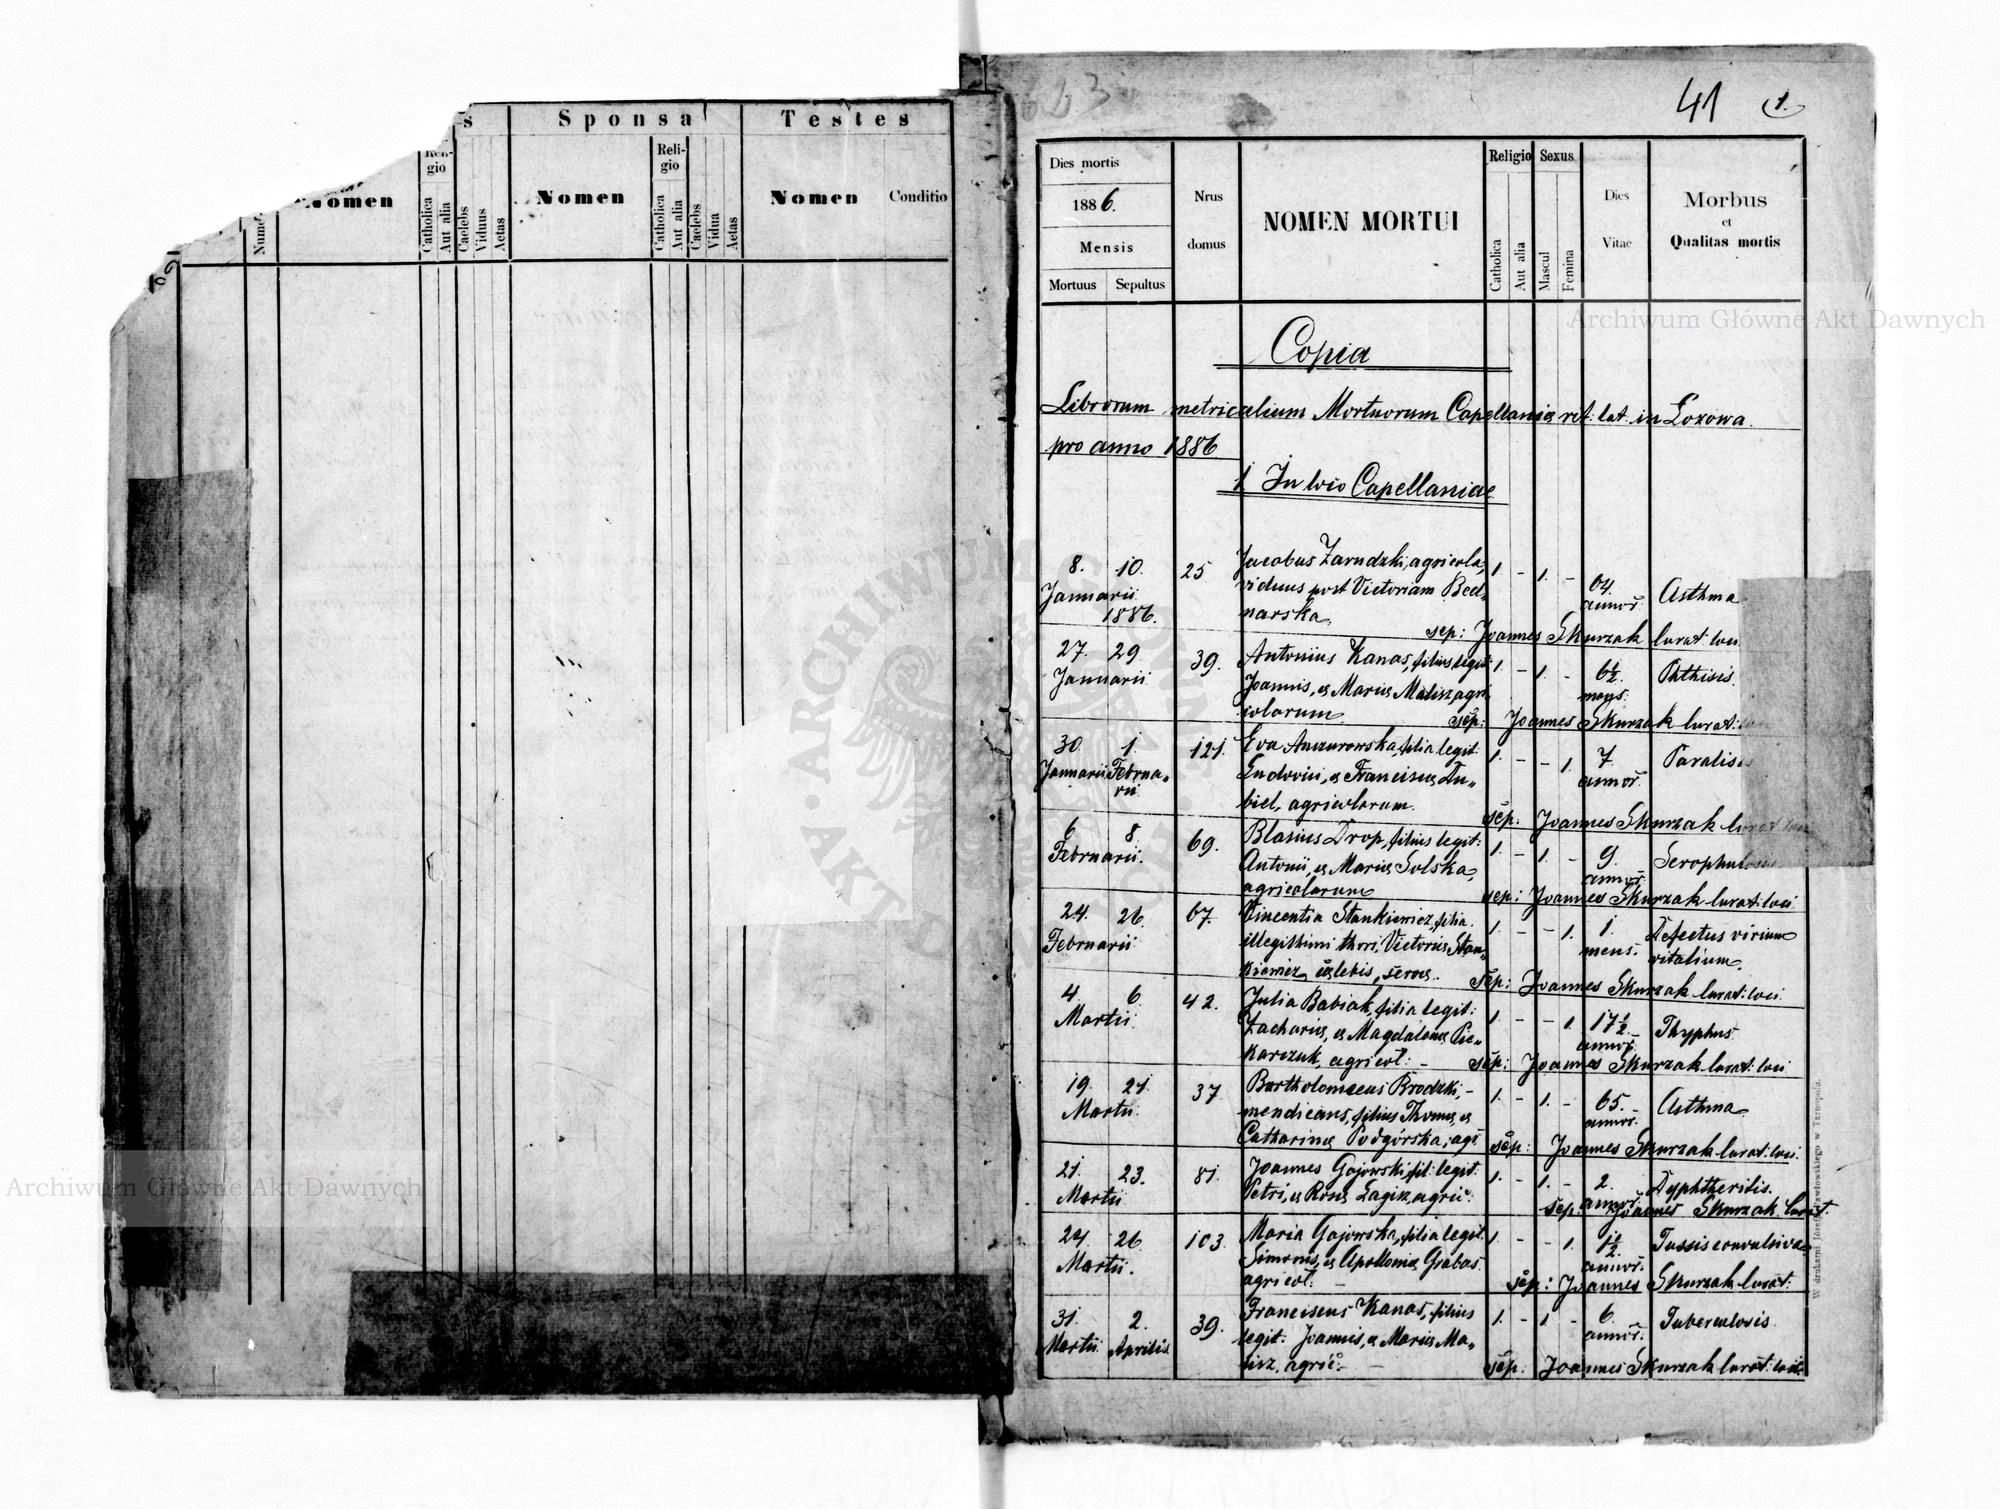 s
Sponsa
Testes
Reli-
gio
Reli-
gio
Nomen
Nomen
Nomen
Conditio
Catholica
Aut alia
Caelebs
Viduus
Aetas
Catholica
Aut alia
Caelebs
Vidua
Aetas
41 1.
Dies mortis
1886.
Mensis
Mortuus Sepultus
Nrus
domus
NOMEN MORTUI
Religio
Catholica
Aut alia
Sexus
Mascul
Femina
Dies
Vitae
Morbus
et
Qualitas mortis
Archiwum Główne Akt Dawnych
Copia
Librorum metricalium Mortuorum Capellaniæ rit: lat: in Łozowa
pro anno 1886
1 In loco Capellaniae
8. 10. 25 Jacobus Zarudzki, agricola, 1. - 1. - 64
Januarii viduus post Victoriam Bed- annor: Asthma
1886. narska
sep: Joannes Skurzak curat: loci
27. 29 39. Antonius Kanas, filius legit: 1. - 1. - 6½ Phthisis
Januarii Joannis, & Mariæ Malisz, agri mens:
colarum
sep: Joannes Skurzak curat:
30. 1. 121. Eva Anzurowska, filia legit: 1. - - 1. 7 Paralis
Januarii Februa- Ludovici, & Franciscæ Du- annor:
rii biel, agricolarum.
sep: Joannes Skurzak curat: loci
6 8 69. Blasius Drop, filius legit: 1. - 1. - 9.
Februarii. Antonii, & Mariæ Solska, annor:
agricolarum
sep: Joannes Skurzak curat: loci
24. 26 67. Vincentia Stankiewicz, filia 1. - - 1. 1. Defectus virium
Februarii illegittimi thori, Victoriæ Stan- mens: vitalium.
kiewicz cælebis, servæ.
sep: Joannes Skurzak curat: loci
4. 6 42. Julia Babiak, filia legit: 1. - - 1. 17½ Thyphus
Martii Zachariæ, & Magdalenæ Pie- annor:
karczuk, agricol: -
sep: Joannes Skurzak curat: loci
19. 21. 37 Bartholomaeus Brodzki, - 1. - 1. - 65. Asthma
Martii mendicans, filius Thomæ, & annor:
Catharinæ Podgórska, agr
sep: Joannes Skurzak curat: loci
21. 23. 81. Joannes Gajowski, fil: legit: 1. - 1. - 2. Dyphtheritis.
Martii Petri, & Rosæ Łagisz, agric: annor:
sep: Joannes Skurzak curat:
24. 26 103. Maria Gajowska, filia legit 1. - - 1. 1½ Tussis convulsiva
Martii. Simonis, & Apolloniæ Grabas annor:
agricol: -
sep: Joannes Skurzak curat:
31. 2. 39. Franciscus Kanas, filius 1. - 1 - 6. Tuberculosis.
Martii Aprilis legit: Joannis, & Mariæ Ma- annor:
lisz, agric: -
sep: Joannes Skurzak curat: loci
Archiwum Główne Akt Dawnych
ARCHIWUM GŁÓWNE AKT DAWNYCH